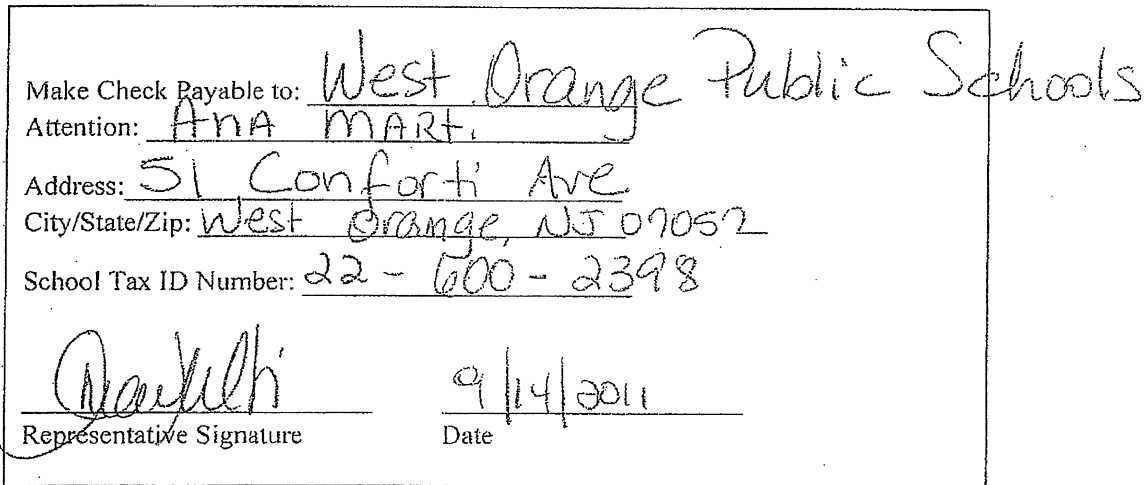 Make Check Payable to: West Orange Public Schools
Attention: AnA MARti
Address: 51 Conforti Ave
City/State/Zip: West Orange, NJ 07052
School Tax ID Number: 22-600-2398
9/14/2011
Representative Signature Date